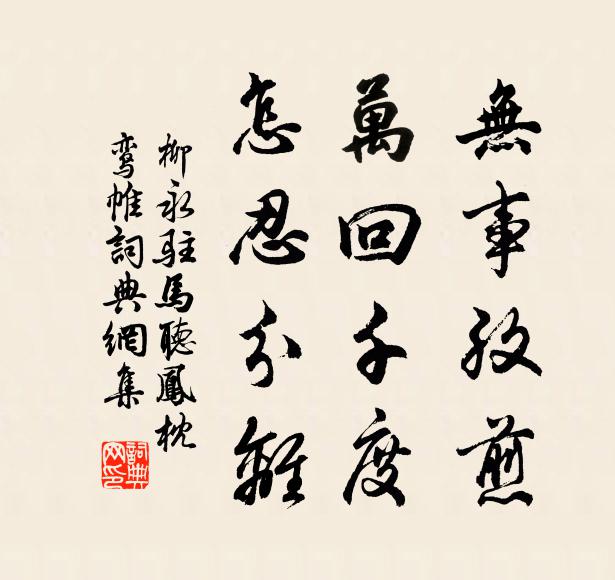 無事孜煎
萬回千度
怎忍分離
柳永駐馬聽鳳枕
鸾帷詞典網集
詞典
网印